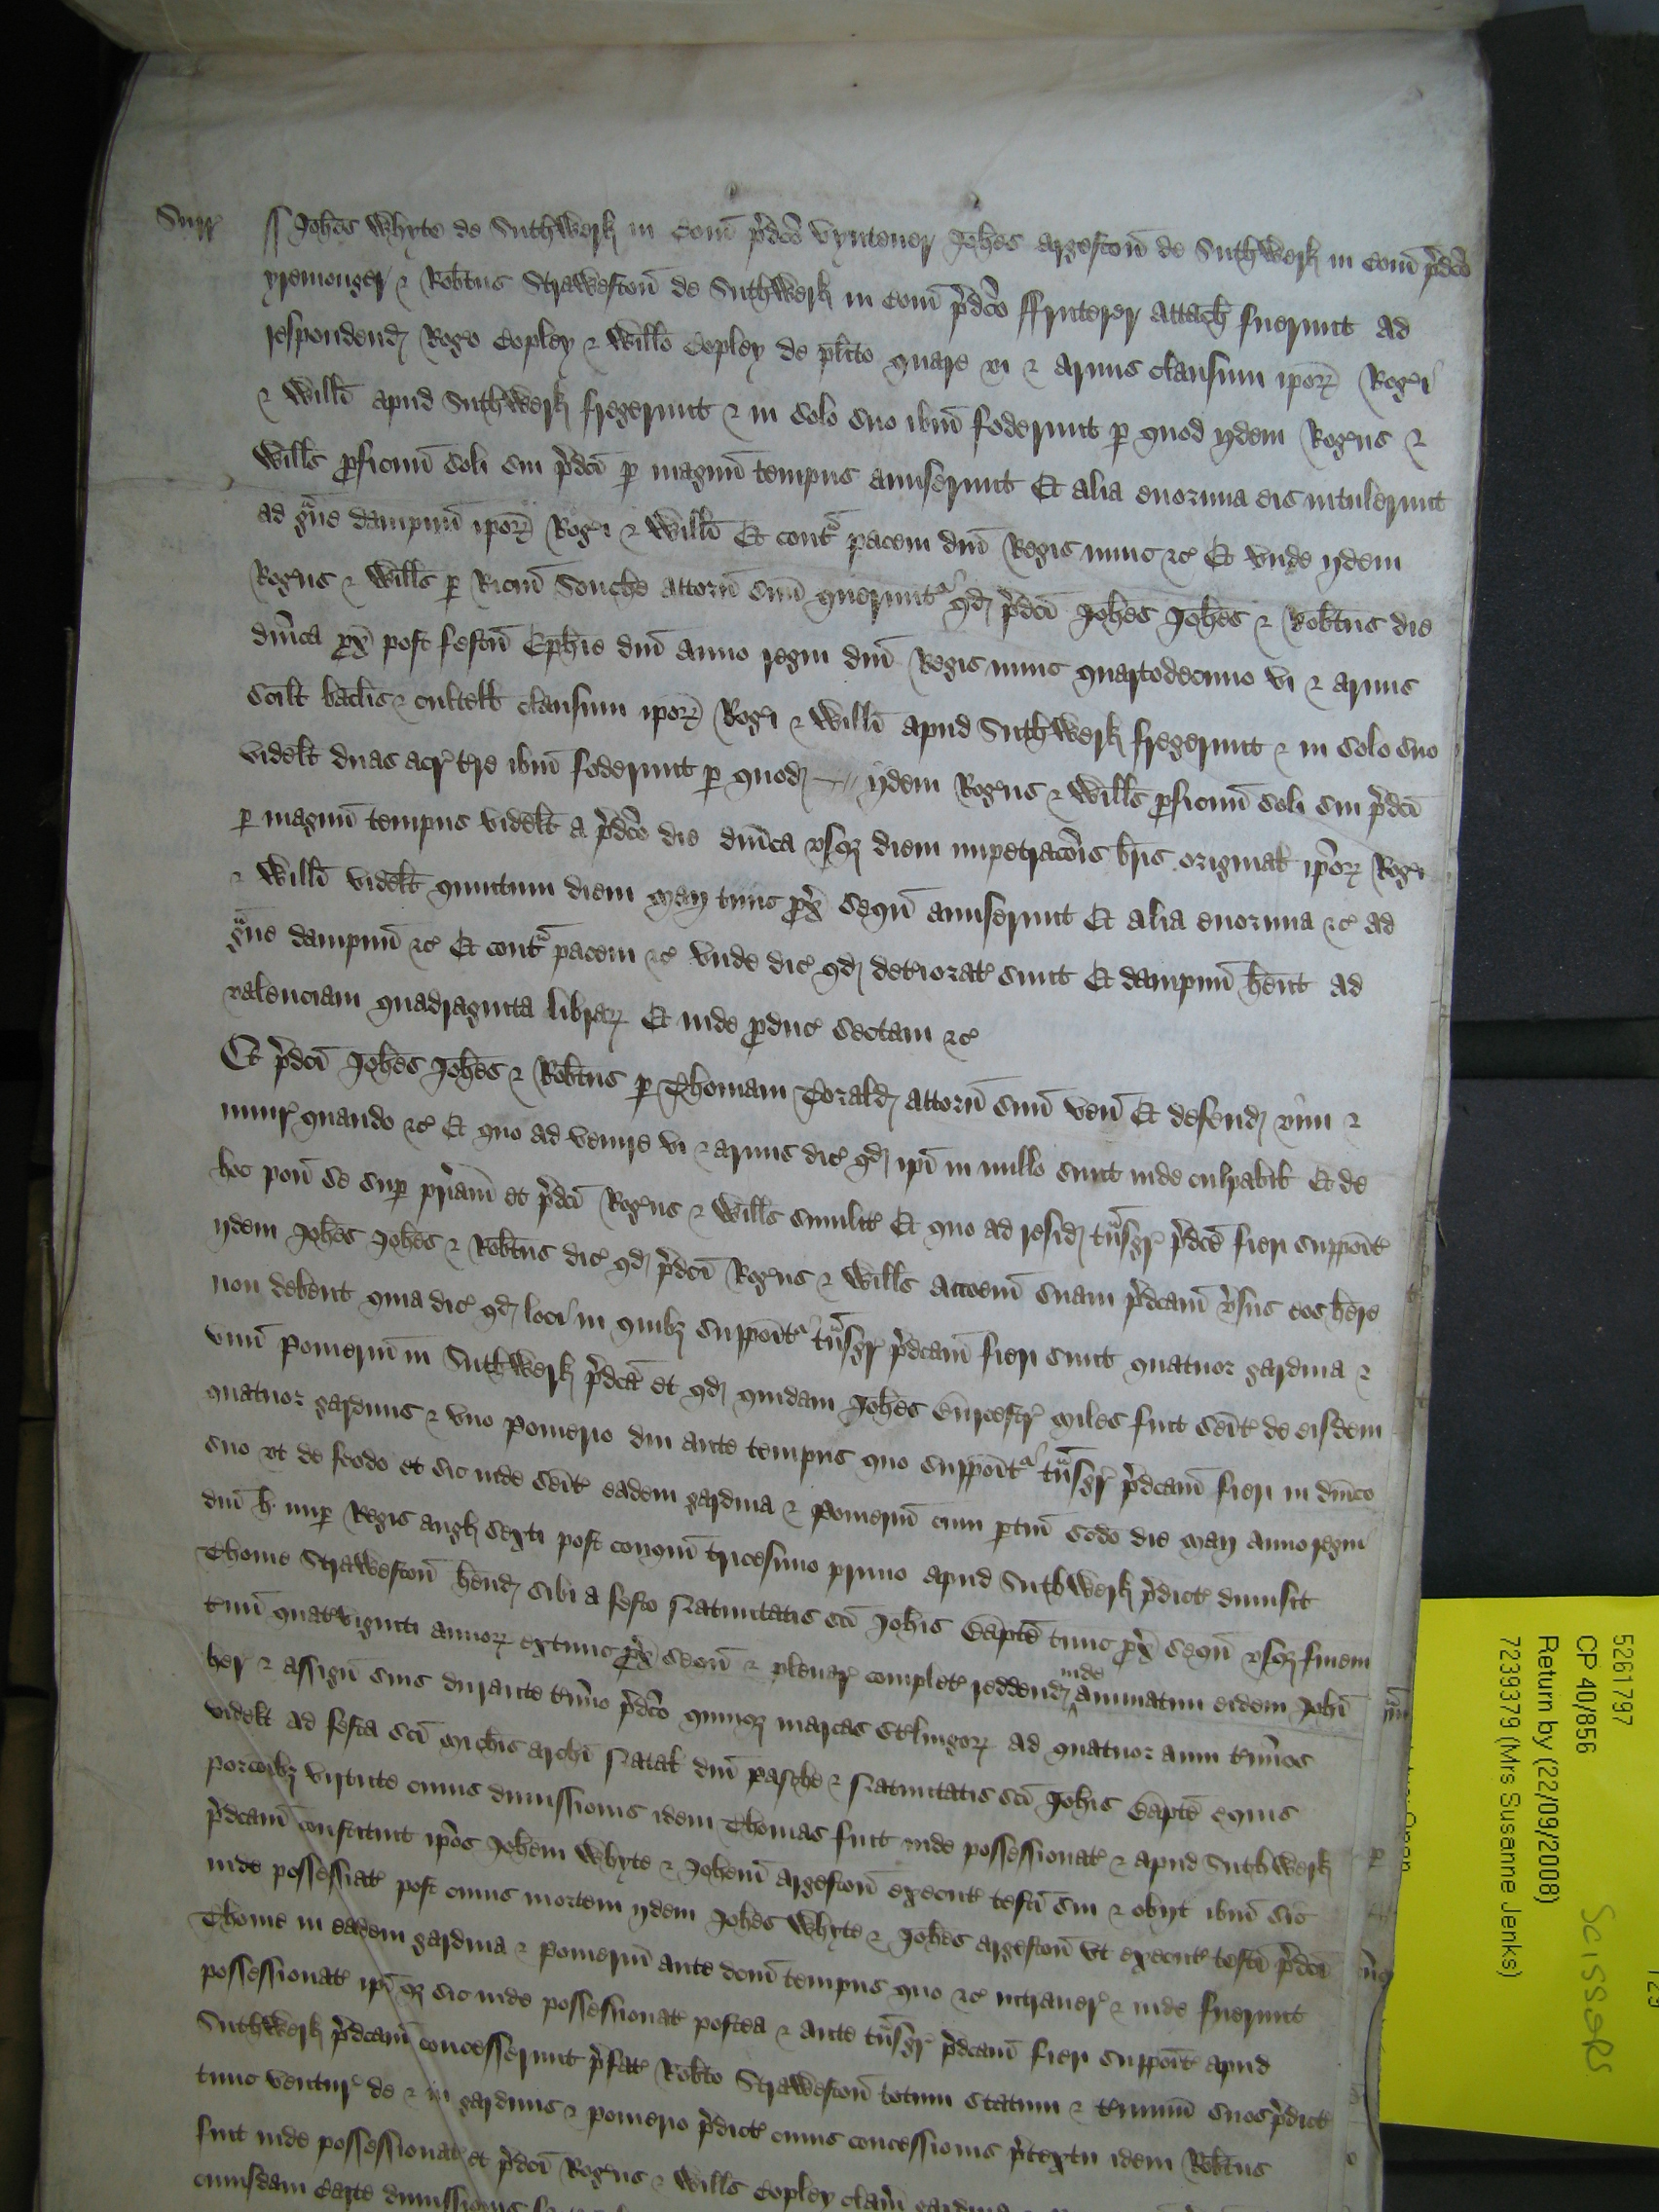 Surr
Johes Whyte de Suthwerk in Com p̄dco vyntener Johes Argeston de Suthwerk in Com p̄dco
yremonger & Robtus Straweston de Suthwerk in Com p̄dco ffruterer attach fuerunt ad
respondend Rogo Copley & Willo Copley de plito quare vi & armis clausum ipor Rogi
& Willi apud Suthwerk fregerunt & in solo suo ibm foderunt p quod ijdem Rogus &
Wills pficuu soli sui p̄dci p magnu tempus amiserunt Et alia enormia eis intulerunt
ad gve dampnu ipor Rogi & Willi Et contra pacem dni Regis nunc &c Et unde ijdem
Rogus & Wills p Ricm Souche attorn suu querunt qd p̄dci Johes Johes & Robtus die
dnica px post festu Ephie dni anno regni dni Regis nunc quartodecimo vi & armis
scilt baclis & cultell clausum ipor Rogi & Willi apud Suthwerk fregerunt & in solo suo
videlt duas acr tre ibm foderunt p quod ijdem Rogus & Wills pficuu soli sui p̄dci
p magnu tempus videlt a p̄dco die dnica usq diem impetracois bris original ipor Rogi
& Willi videlt quintum diem Maij tunc px sequn amiserunt Et alia enormia &c ad
gve dampnu &c Et contra pacem &c unde dic qd deteriorat sunt Et dampnu hent ad
valenciam quadraginta librar Et inde pduc sectam &c
Et p̄dci Johes Johes & Robtus p Thomam Torald attorn suu ven Et defend vim &
iniur quando &c Et quo ad venire vi & armis dic qd ipi in nullo sunt inde culpabil Et de
hoc pon se sup priam et p̄dci Rogus & Wills similit Et quo ad resid tnsgr p̄dce fieri suppoit
ijdem Johes Johes & Robtus dic qd p̄dci Rogus & Wills accoem suam p̄dcam vsus eos here
non debent quia dic qd loci in quibz suppoit tnsgr p̄dcam fieri sunt quatuor gardina &
unu Pomeriu in Suthwerk p̄dca et qd quidam Johes Burcestr Miles fuit seit de eisdem
quatuor gardinis & uno Pomerio diu ante tempus quo suppoit tnsgr p̄dcam fieri in dnico
suo ut de feodo et sic inde seit eadem gardina & Pomeriu cum ptin scdo die Maij anno regni
dni H nup Regis Angl sexti post conqm tricesimo primo apud Suthwerk p̄dict dimisit
Thome Straweston hend sibi a festo Natiuitatis Sci Johis Bapte tunc px sequn usq finem
tmi quatviginti annor extunc px sequn & plenar complet reddend inde annuatim eidem Johi
her & assign suis durante tmino p̄dco quinq marcas sterlingor ad quatuor anni tminos
videlt ad festa Sci Michis Archi Natal dni Pasche & Natiuitatis Sci Johis Bapte equis
porcoibz virtute cuius dimissionis idem Thomas fuit inde possessionat & apud Suthwerk
p̄dcam constituit ipos Johem Whyte & Johem Argeston execut testi sui & obijt ibm sic
inde possessiat post cuius mortem ijdem Johes Whyte & Johes Argeston ut execut testi p̄dci
Thome in eadem gardina & Pomeriu ante dcm tempus quo &c intrauer & inde fuerunt
possessionat ipi q sic inde possessionat postea & ante tnsgr p̄dcam fieri suppoit apud
Suthwerk p̄dcam concesserunt p̄fat Robto Straweston totum statum & tminu suos p̄dict
tunc ventur de & in gardinis & pomerio p̄dict cuius concessionis p̄textu idem Robtus
fuit inde possessionat et p̄dci Rogus & Wills Copley clam gardina
cuiusdam carte dimissionis
5261797
CP 40/856
Return by (22/09/2008)
7239379 (Mrs Susanne Jenks)
SCISSORS